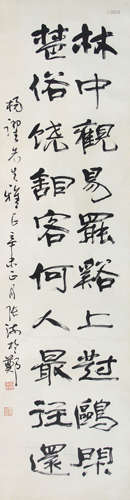 林中觀易罷谿上對鷗閑
楚俗饶詞客何人最往還
先生雅正辛未正月张海於鄭